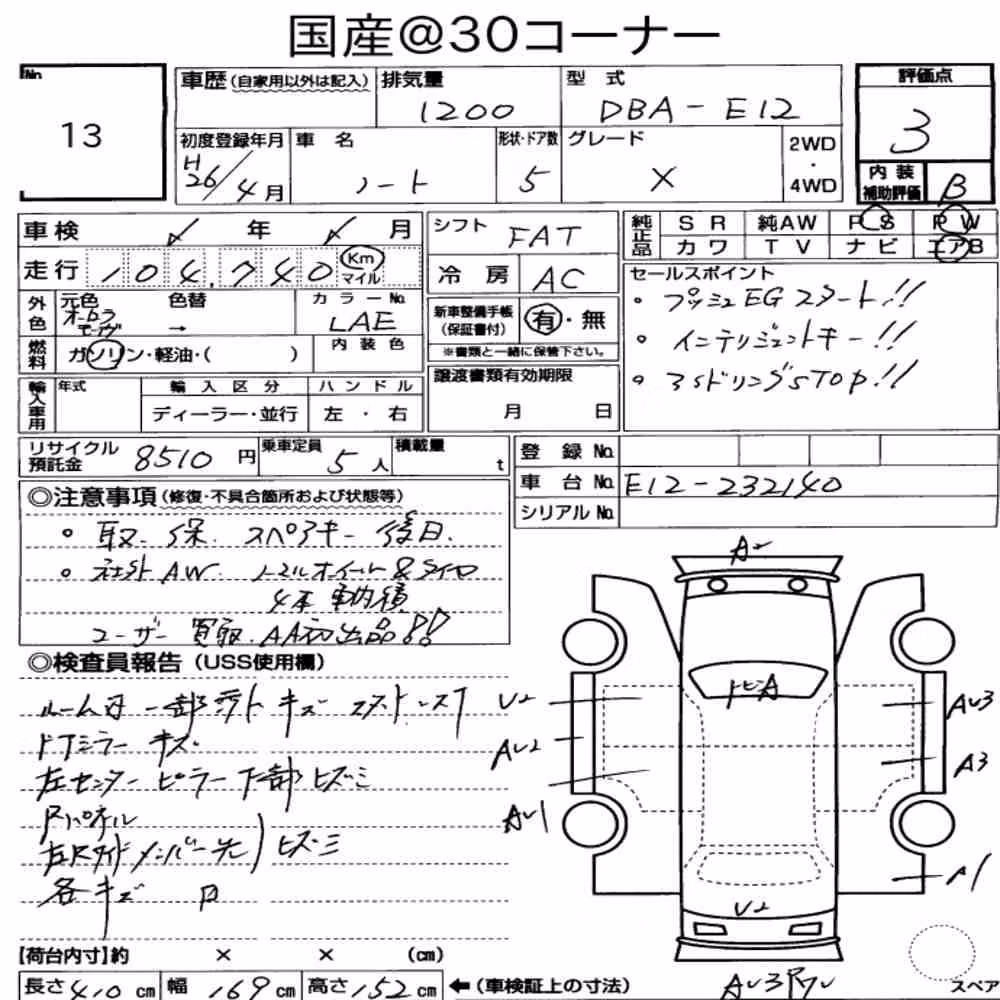 国産@30コーナー
No. 13
車歴 (自家用以外は記入)
排気量 1200
型式 DBA-E12
評価点 3
初度登録年月 H26/4月
車名 ノート
形状・ドア数 5
グレード X
2WD・4WD
内装補助評価 B
車検 年 月
走行 104,740 Km マイル
シフト FAT
冷房 AC
純正品 SR 純AW PS PW
カワ TV ナビ エアB
外色 元色 色替 →
カラーNo. LAE
燃料 ガソリン・軽油・( )
内装色
新車整備手帳(保証書付) 有・無
※書類と一緒に保管下さい。
セールスポイント
・プッシュEGスタート!!
・インテリジェントキー!!
輸入車用 年式 輸入区分 ハンドル
ディーラー・並行 左・右
譲渡書類有効期限
月 日
リサイクル預託金 8510円
乗車定員 5人
積載量 t
登録No.
車台No. E12-232140
シリアルNo.
◎注意事項(修復・不具合箇所および状態等)
○取、保、スペアキー 後日.
○社外AW. ノーマルホイール&タイヤ
4本 車内積
ユーザー買取. AA初出品!!
◎検査員報告 (USS使用欄)
ルーム内一部
ドアミラーキズ
左センターピラー下部ヒズミ
Rパネル
ヒズミ
各キズ
A2
トビA
U2
AU2
AU1
AU3
A3
A1
U2
【荷台内寸】約 × × (cm)
長さ 410cm 幅 169cm 高さ 152cm ←(車検証上の寸法)
スペア